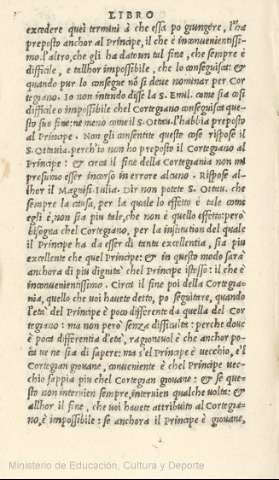 LIBRO
excedere quei termini à che essa po giungere, l'ha
preposto anchor al Principe, il che è inconvenientissi-
mo. l'altro, che gli ha dato un tal fine, che sempre è
difficile, e talhor impossibile, che lo conseguisca: &
quando pur lo consegue nõ si deue nominar per Cor
tegiano. Io non intendo disse la S. Emil. come sia cosi
difficile o impossibile chel Cortegiano conseguisca que
sto suo fine: ne meno come il S. Ottau. l'habbia preposto
al Principe. Non gli consentite queste cose rispose il
S. Ottauia. perch'io non ho preposto il Cortegiano al
Principe: & circa il fine della Cortegiania non mi
presumo esser incorso in errore alcuno. Rispose al-
lhor il Magnifi. Iulia. Dir non potete S. Ottau. che
sempre la causa, per la quale lo effetto è tale come
egli è, non sia piu tale, che non è quello effetto: però
bisogna chel Cortegiano, per la institution del quale
il Principe ha da esser di tanta excellentia, sia piu
excellente che quel Principe: & in questo modo sarà
anchora di piu dignità chel Principe istesso: il che è
inconuenientissimo. Circa il fine poi della Cortegia-
nia, quello che voi hauete detto, po seguitere, quando
l'età del Principe è poco differente da quella del Cor
tegiano: ma non però senza difficultà: perche doue
è poca differentia d'età, ragionuol è che anchor po-
ca ue ne sia di sapere: ma s'el Principe è vecchio, e'l
Cortegian giouane, conueniente è chel Principe vec
chio sappia piu chel Cortegian giouane: & se que-
sto non interuien sempre, interuien qualche volta: &
allhor il fine, che voi hauete attribuito al Cortegia-
no, è impossibile: se anchora il Principe è giouane,
Ministerio de Educación, Cultura y Deporte